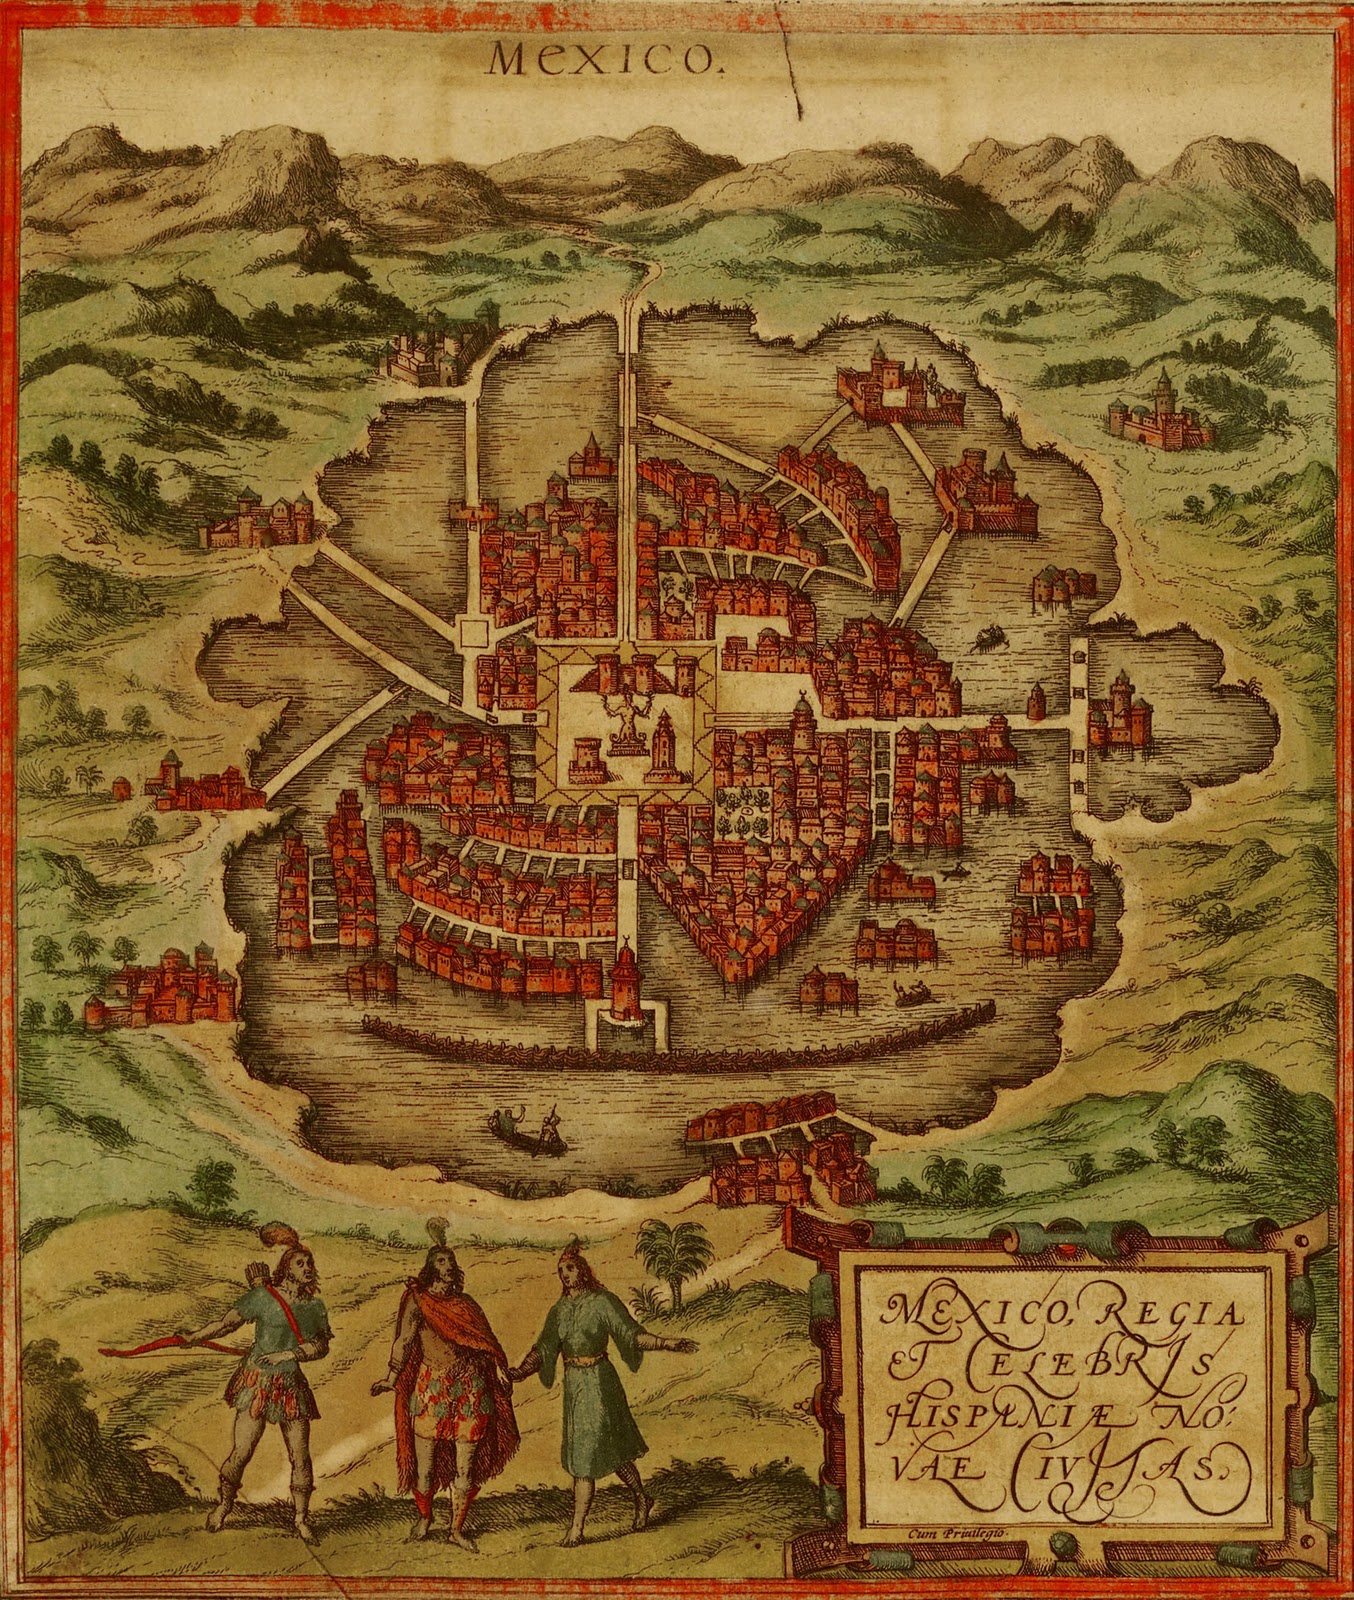 MEXICO.
MEXICO, REGIA
ET CELEBRIS
HISPANIÆ NO:
VAE CIVITAS.
Cum Priuilegio.